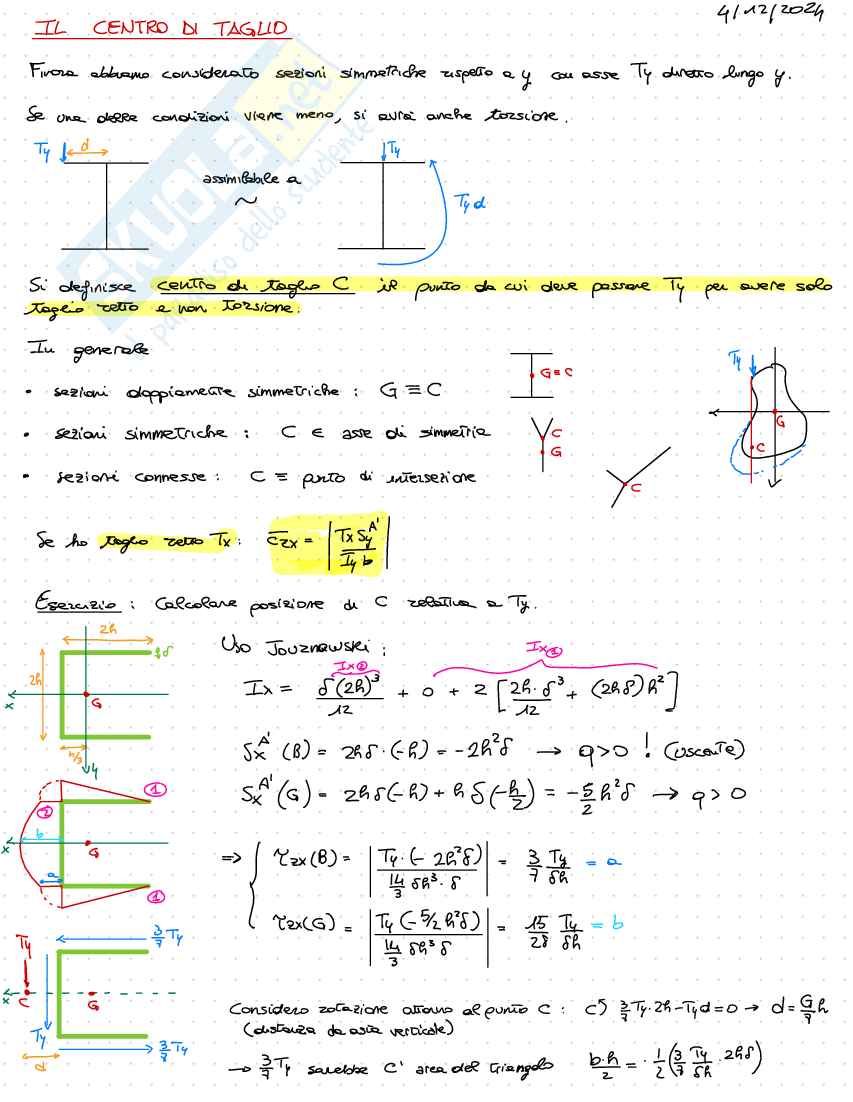 4/12/2024
IL CENTRO DI TAGLIO
Finora abbiamo considerato sezioni simmetriche rispetto a y con asse Ty diretto lungo y.
Se una delle condizioni viene meno, si avrà anche torsione.
Ty d
assimilabile a
~
Ty
Ty d
Si definisce centro di taglio C il punto da cui deve passare Ty per avere solo
taglio retto e non torsione.
In generale
• sezioni doppiamente simmetriche : G ≡ C
• sezioni simmetriche : C ∈ asse di simmetria
• sezioni connesse : C ≡ punto di intersezione
G ≡ C
C
G
C
Ty
G
C
Se ho taglio retto Tx : τzx = | Tx Sy^A' / Iy b |
Esercizio : Calcolare posizione di C relativa a Ty.
2h
δ
2h
x
G
h/3
y
Uso Jourawski :
Ix② Ix①
Ix = δ(2h)³/12 + 0 + 2 [ 2h·δ³/12 + (2hδ)h² ]
Sx^A' (B) = 2hδ·(-h) = -2h²δ → q>0 ! (uscente)
Sx^A' (G) = 2hδ(-h) + hδ(-h/2) = -5/2 h²δ → q > 0
①
②
b
x
G
a
①
=> { τzx(B) = | Ty·(-2h²δ) / 14/3 δh³·δ | = 3/7 Ty/δh = a
τzx(G) = | Ty(-5/2 h²δ) / 14/3 δh³δ | = 15/28 Ty/δh = b
3/7 Ty
Ty
x
C
G
Ty
d
3/7 Ty
Considero rotazione attorno al punto C : C) 3/7 Ty·2h - Ty d = 0 → d = 6/7 h
(distanza da asta verticale)
→ 3/7 Ty sarebbe l'area del triangolo b·h/2 = · 1/2 (3/7 Ty/δh · 2hδ)
SKUOLA.net
il paradiso dello studente